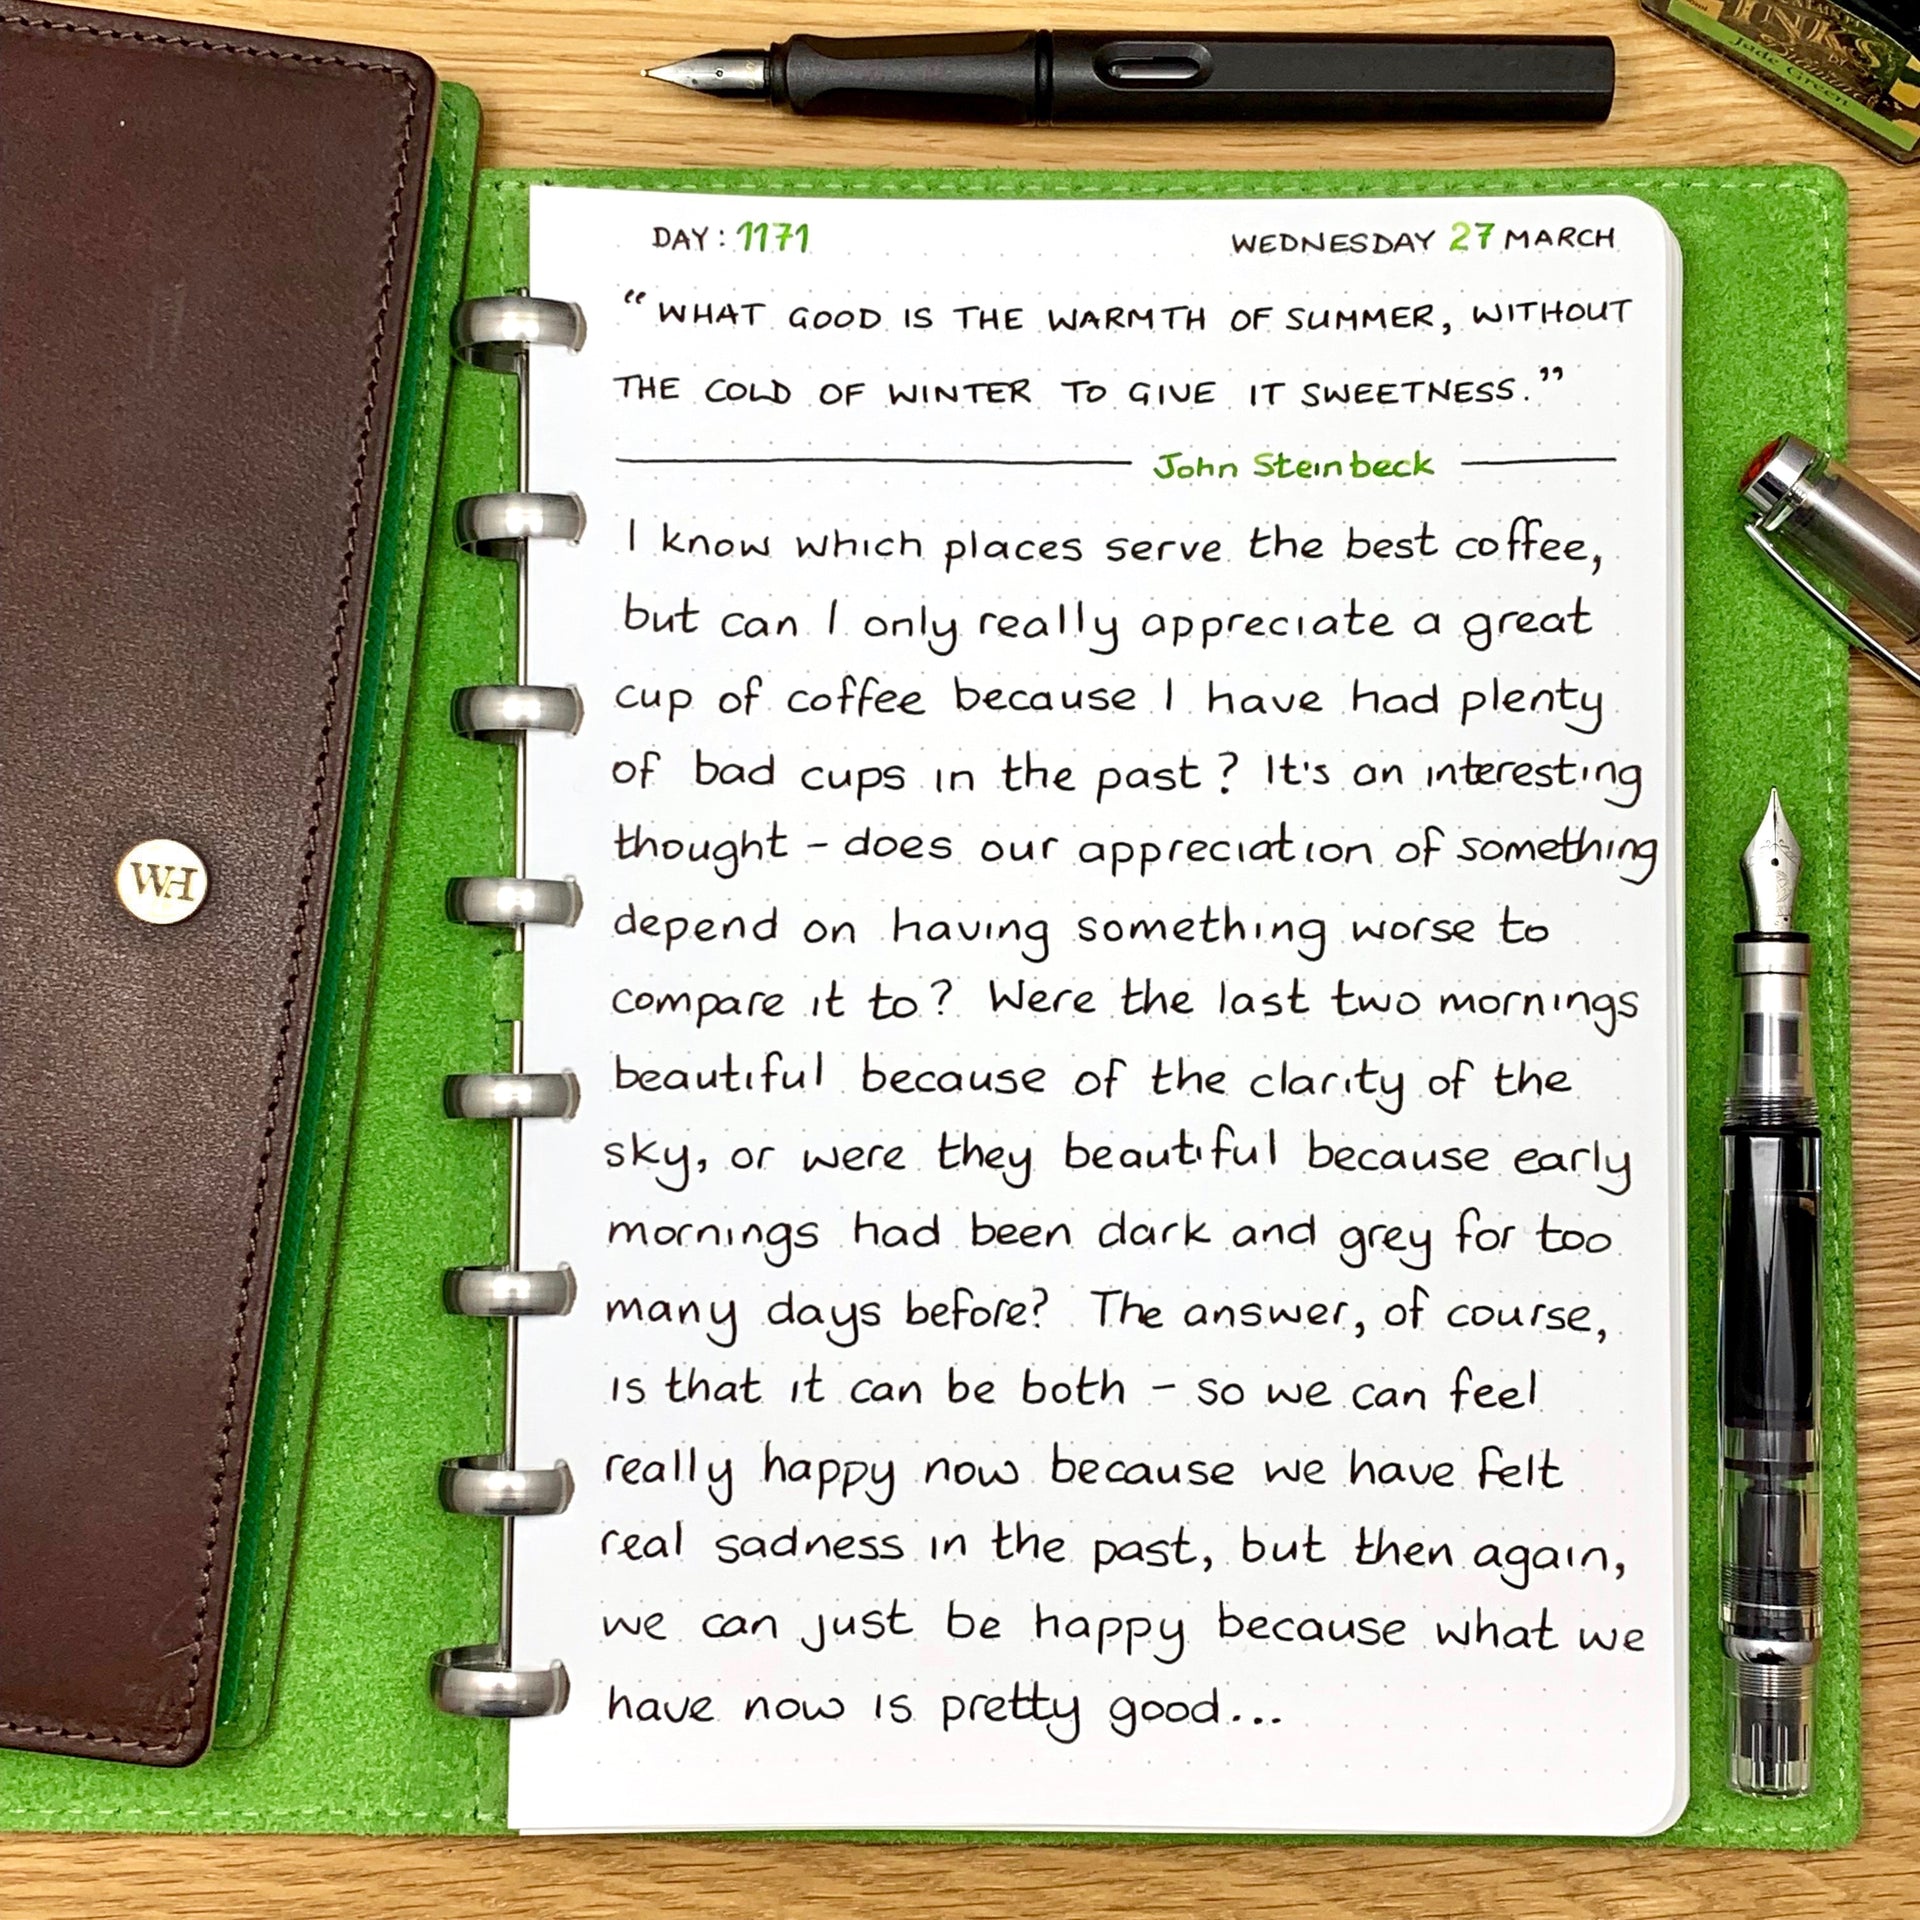 INKS
Jade Green
DAY: 1171
WEDNESDAY 27 MARCH
"WHAT GOOD IS THE WARMTH OF SUMMER, WITHOUT
THE COLD OF WINTER TO GIVE IT SWEETNESS."
John Steinbeck
I know which places serve the best coffee,
but can I only really appreciate a great
cup of coffee because I have had plenty
of bad cups in the past? It's an interesting
thought - does our appreciation of something
depend on having something worse to
compare it to? Were the last two mornings
beautiful because of the clarity of the
sky, or were they beautiful because early
mornings had been dark and grey for too
many days before? The answer, of course,
is that it can be both - so we can feel
really happy now because we have felt
real sadness in the past, but then again,
we can just be happy because what we
have now is pretty good...
WH